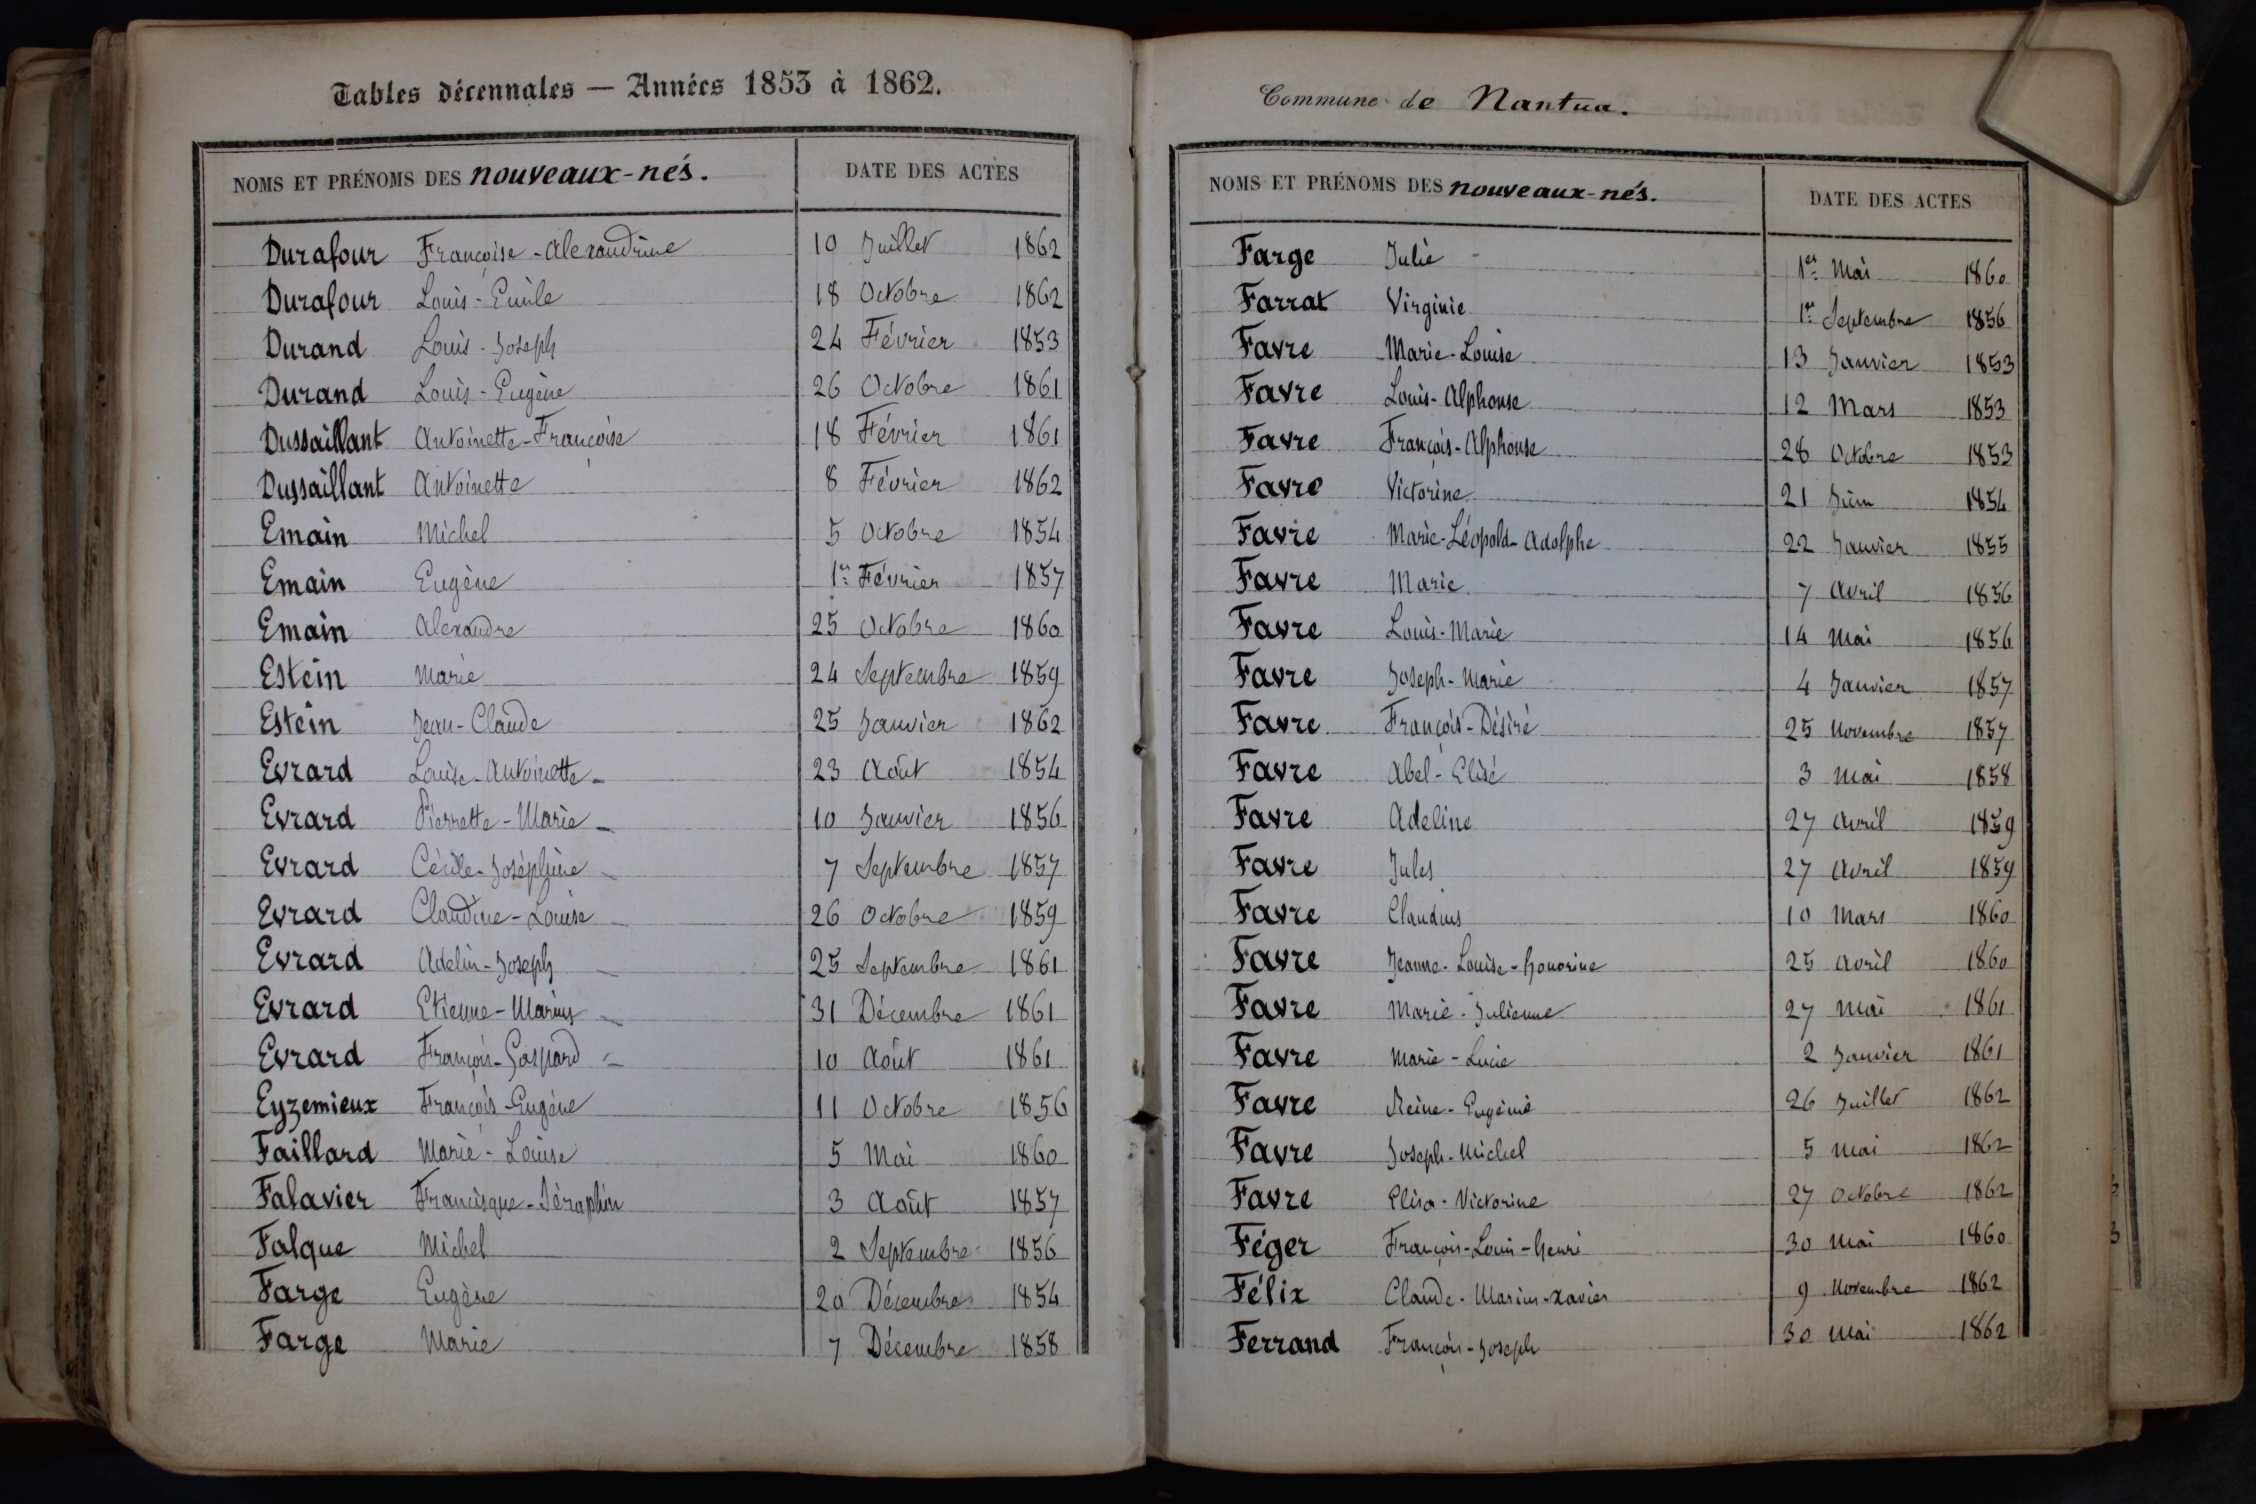 Tables décennales — Années 1853 à 1862.
NOMS ET PRÉNOMS DES nouveaux-nés. DATE DES ACTES
Durafour Françoise-Alexandrine 10 Juillet 1862
Durafour Louis-Emile 18 Octobre 1862
Durand Louis-Joseph 24 Février 1853
Durand Louis-Eugène 26 Octobre 1861
Dussaillant Antoinette-Françoise 18 Février 1861
Dussaillant Antoinette 8 Février 1862
Emain Michel 5 Octobre 1854
Emain Eugène 1er Février 1857
Emain Alexandre 25 Octobre 1860
Estein Marie 24 Septembre 1859
Estein Jean-Claude 25 Janvier 1862
Evrard Louise-Antoinette 23 Août 1854
Evrard Pierrette-Marie 10 Janvier 1856
Evrard Cécile-Joséphine 7 Septembre 1857
Evrard Claudine-Louise 26 Octobre 1859
Evrard Adelin-Joseph 25 Septembre 1861
Evrard Etienne-Marius 31 Décembre 1861
Evrard François-Gaspard 10 Août 1861
Eyzemieux François-Eugène 11 Octobre 1856
Faillard Marie-Louise 5 Mai 1860
Falavier Francisque-Séraphin 3 Août 1857
Falque Michel 2 Septembre 1856
Farge Eugène 20 Décembre 1854
Farge Marie 7 Décembre 1858
Commune de Nantua.
NOMS ET PRÉNOMS DES nouveaux-nés. DATE DES ACTES
Farge Julie 1er Mai 1860
Farrat Virginie 1er Septembre 1856
Favre Marie-Louise 13 Janvier 1853
Favre Louis-Alphonse 12 Mars 1853
Favre François-Alphonse 28 Octobre 1853
Favre Victorine 21 Juin 1854
Favre Marie-Léopold-Adolphe 22 Janvier 1855
Favre Marie 7 Avril 1856
Favre Louis-Marie 14 Mai 1856
Favre Joseph-Marie 4 Janvier 1857
Favre François-Désiré 25 Novembre 1857
Favre Abel-Elisé 3 Mai 1858
Favre Adeline 27 Avril 1859
Favre Jules 27 Avril 1859
Favre Claudius 10 Mars 1860
Favre Jeanne-Louise-Honorine 25 Avril 1860
Favre Marie-Julienne 27 Mai 1861
Favre Marie-Lucie 2 Janvier 1861
Favre Reine-Eugénie 26 Juillet 1862
Favre Joseph-Michel 5 Mai 1862
Favre Elisa-Victorine 27 Octobre 1862
Féger François-Louis-Henri 30 Mai 1860
Félix Claude-Marius-Xavier 9 Novembre 1862
Ferrand François-Joseph 30 Mai 1862